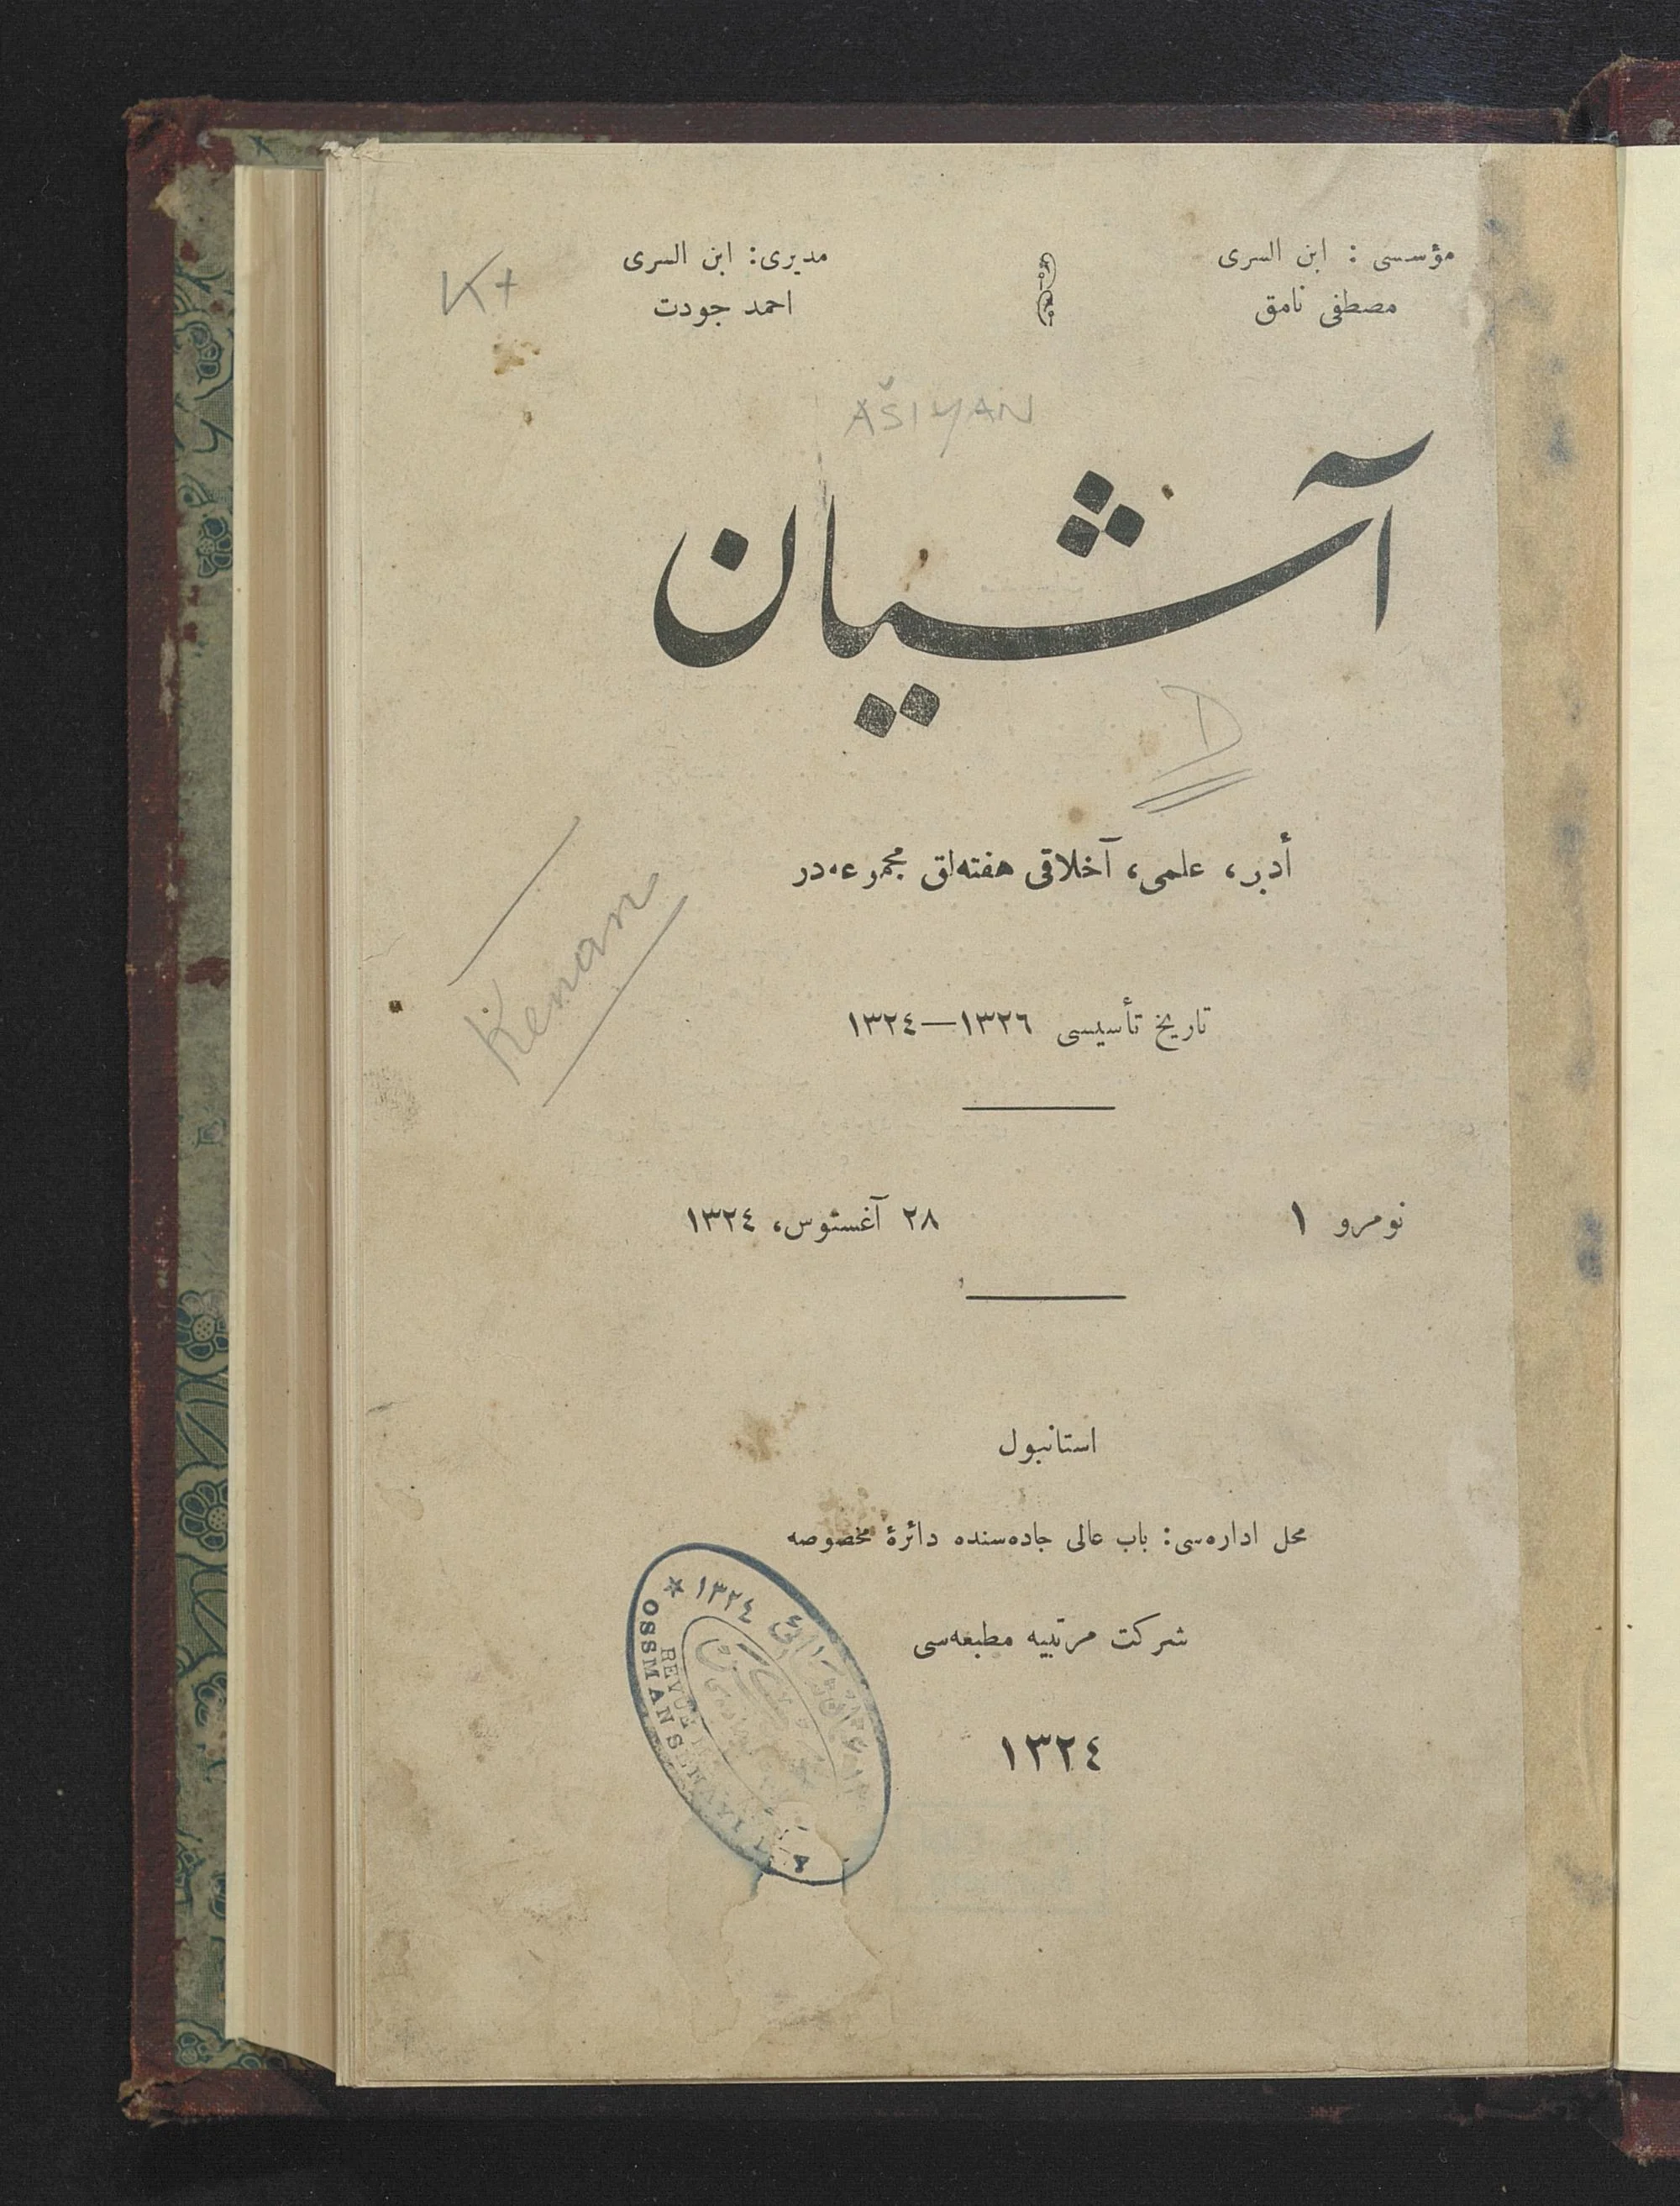 مؤسسی : ابن السری
مصطفی نامق
مدیری: ابن السری
احمد جودت
K+
AŠIYAN
آشیان
D
أدبی، علمی، آخلاقی هفته‌لق مجموعه‌در
Kenan
تاریخ تأسیسی ١٣٢٦—١٣٢٤
نومرو ١
٢٨ آغستوس، ١٣٢٤
استانبول
محل اداره‌سی: باب عالی جاده‌سنده دائرهٔ مخصوصه
شرکت مرتبیه مطبعه‌سی
١٣٢٤
١٣٢٤
REVUE
OSSMAN